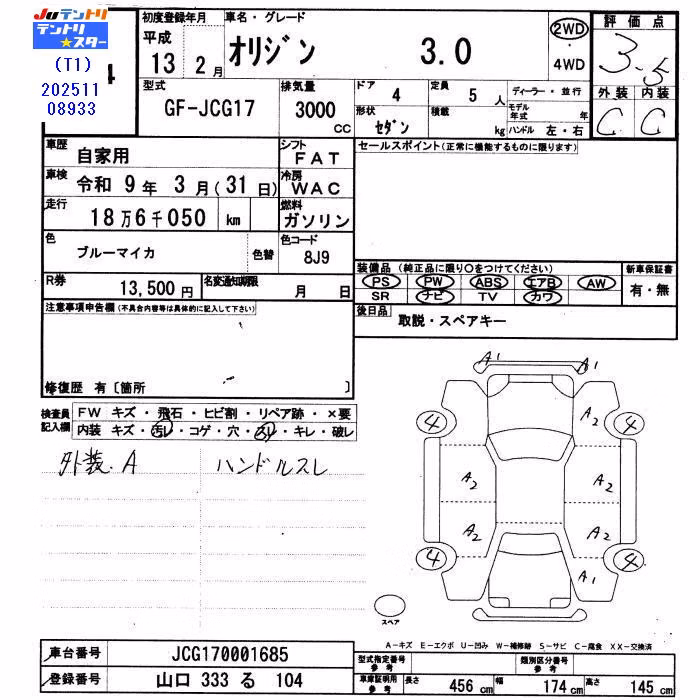 Juテントリ
テントリ★スター
(T1)
202511
08933
4
初度登録年月 車名・グレード
平成
13 2月 オリジン 3.0
2WD
4WD
評価点
3.5
外装 内装
C C
型式 排気量 ドア 4 定員 5人 ディーラー・並行
GF-JCG17 3000cc
形状 セダン 積載 kg モデル年式 年
ハンドル 左・右
車歴 自家用 シフト FAT
車検 令和 9年 3月(31日) 冷房 WAC
走行 18万6千050 km 燃料 ガソリン
色 ブルーマイカ 色替 色コード 8J9
R券 13,500円 名変通知期限 月 日
セールスポイント(正常に機能するものに限ります)
装備品(純正品に限り〇をつけてください) 新車保証書
PS PW ABS エアB AW 有・無
SR ナビ TV カワ
後日品 取説・スペアキー
注意事項申告欄(不具合内容等は具体的に記入して下さい)
修復歴 有〔箇所 〕
検査員記入欄 FW キズ・飛石・ヒビ割・リペア跡・×要
内装 キズ・汚レ・コゲ・穴・スレ・キレ・破レ
外装. A ハンドルスレ
A1 A1
A2
4 4
A2 A2
A2 A2
4 4
A1
スペア
A-キズ E-エクボ U-凹み W-補修跡 S-サビ C-腐食 XX-交換済
車台番号 JCG170001685
登録番号 山口 333 る 104
型式指定番号参考 類別区分番号参考
車庫証明用参考 長さ 456cm 幅 174cm 高さ 145cm